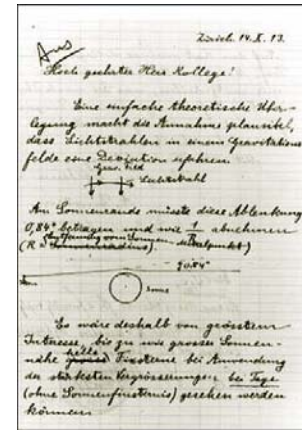 Zürich. 14. X. 13.
Hoch geehrter Herr Kollege!
Eine einfache theoretische Über-
legung macht die Annahme plausibel,
dass Lichtstrahlen in einem Gravitations
felde eine Deviation erfahren.
Grav. Feld
Lichtstrahl
Am Sonnenrande müsste diese Ablenkung
0,84" betragen und wie 1/R abnehmen
(R =
0,84"
Sonne
Es wäre deshalb von grösstem
Interesse, bis zu wie grosser Sonnen-
nähe helle Fixsterne bei Anwendung
der stärksten Vergrösserungen bei Tage
(ohne Sonnenfinsternis) gesehen werden
können.